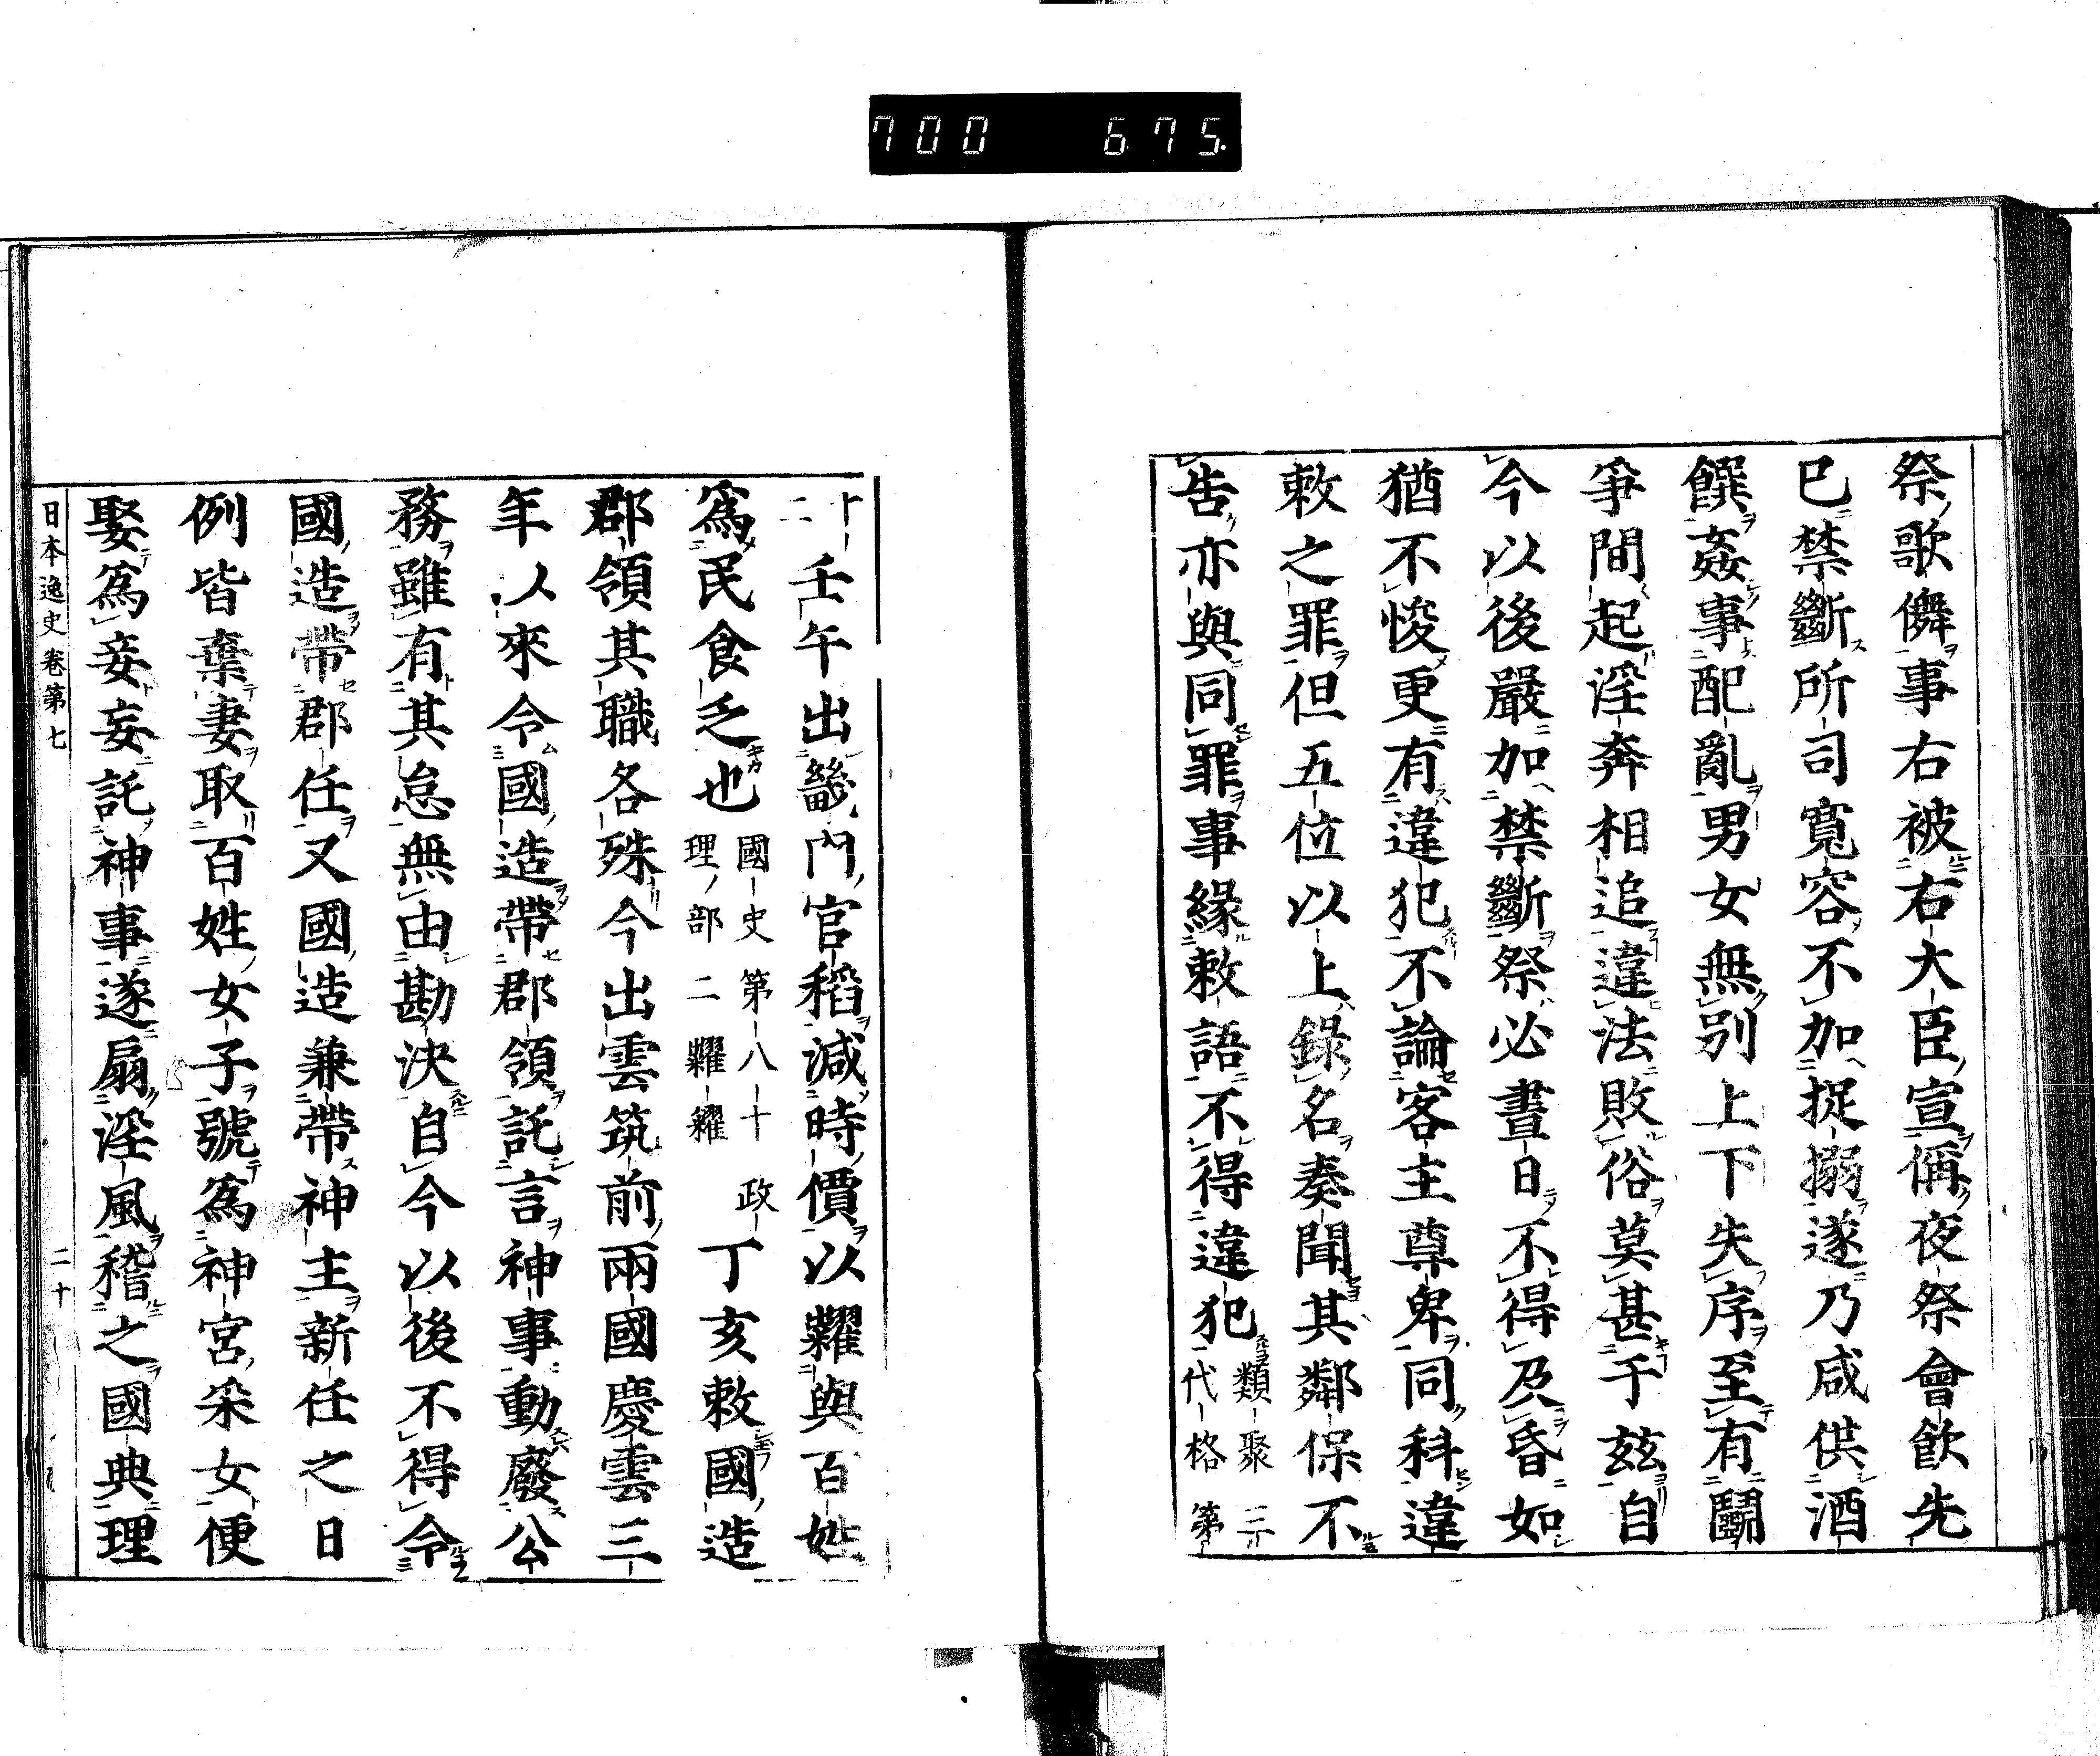 700 675.
祭歌儛事右被右大臣宣稱夜祭會飲先
已禁斷所司寬容不加捉搦遂乃咸供酒
饌姦事配亂男女無別上下失序至有鬪
爭間起淫奔相追違法敗俗莫甚于玆自
今以後嚴加禁斷祭必晝日不得及昏如
猶不悛更有違犯不論客主尊卑同科違
敕之罪但五位以上錄名奏聞其鄰保不
告亦與同罪事緣敕語不得違犯類聚三代格第
十二壬午出畿內官稻減時價以糶與百姓
爲民食乏也國史第八十政理部二糶糴丁亥敕國造
郡領其職各殊今出雲筑前兩國慶雲三
年以來令國造帶郡領託言神事動廢公
務雖有其怠無由勘決自今以後不得令
國造帶郡任又國造兼帶神主新任之日
例皆棄妻取百姓女子號爲神宮采女便
娶爲妾妄託神事遂扇淫風稽之國典理
日本逸史卷第七 二十